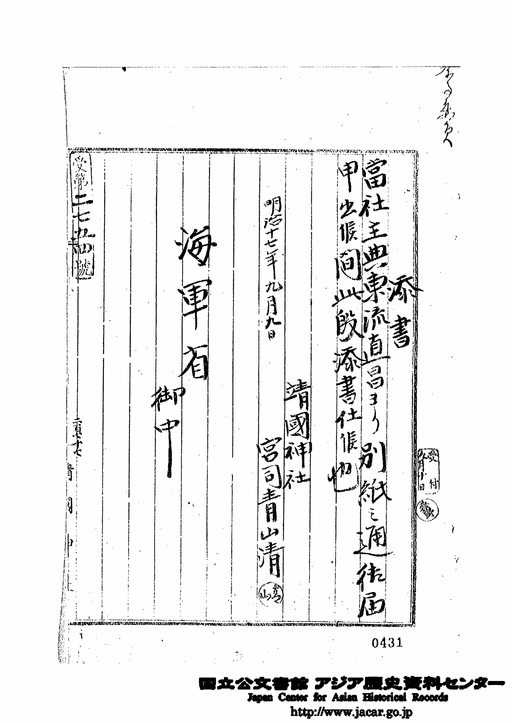 添書
當社主典東流直昌ヨリ別紙之通往届
申出候間此段添書仕候也
明治十七年九月九日
靖國神社
宮司青山清
海軍省
御中
受第二七五四號
受付
靖國神社
0431
国立公文書館 アジア歴史資料センター
Japan Center for Asian Historical Records
http://www.jacar.go.jp